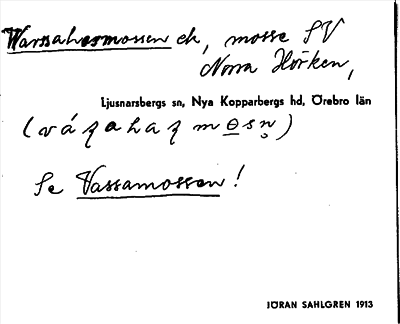 Warsahesmossen ek, mosse SV
Norra Hörken,
Ljusnarsbergs sn, Nya Kopparbergs hd, Örebro län
Se Vassamossen!
JÖRAN SAHLGREN 1913